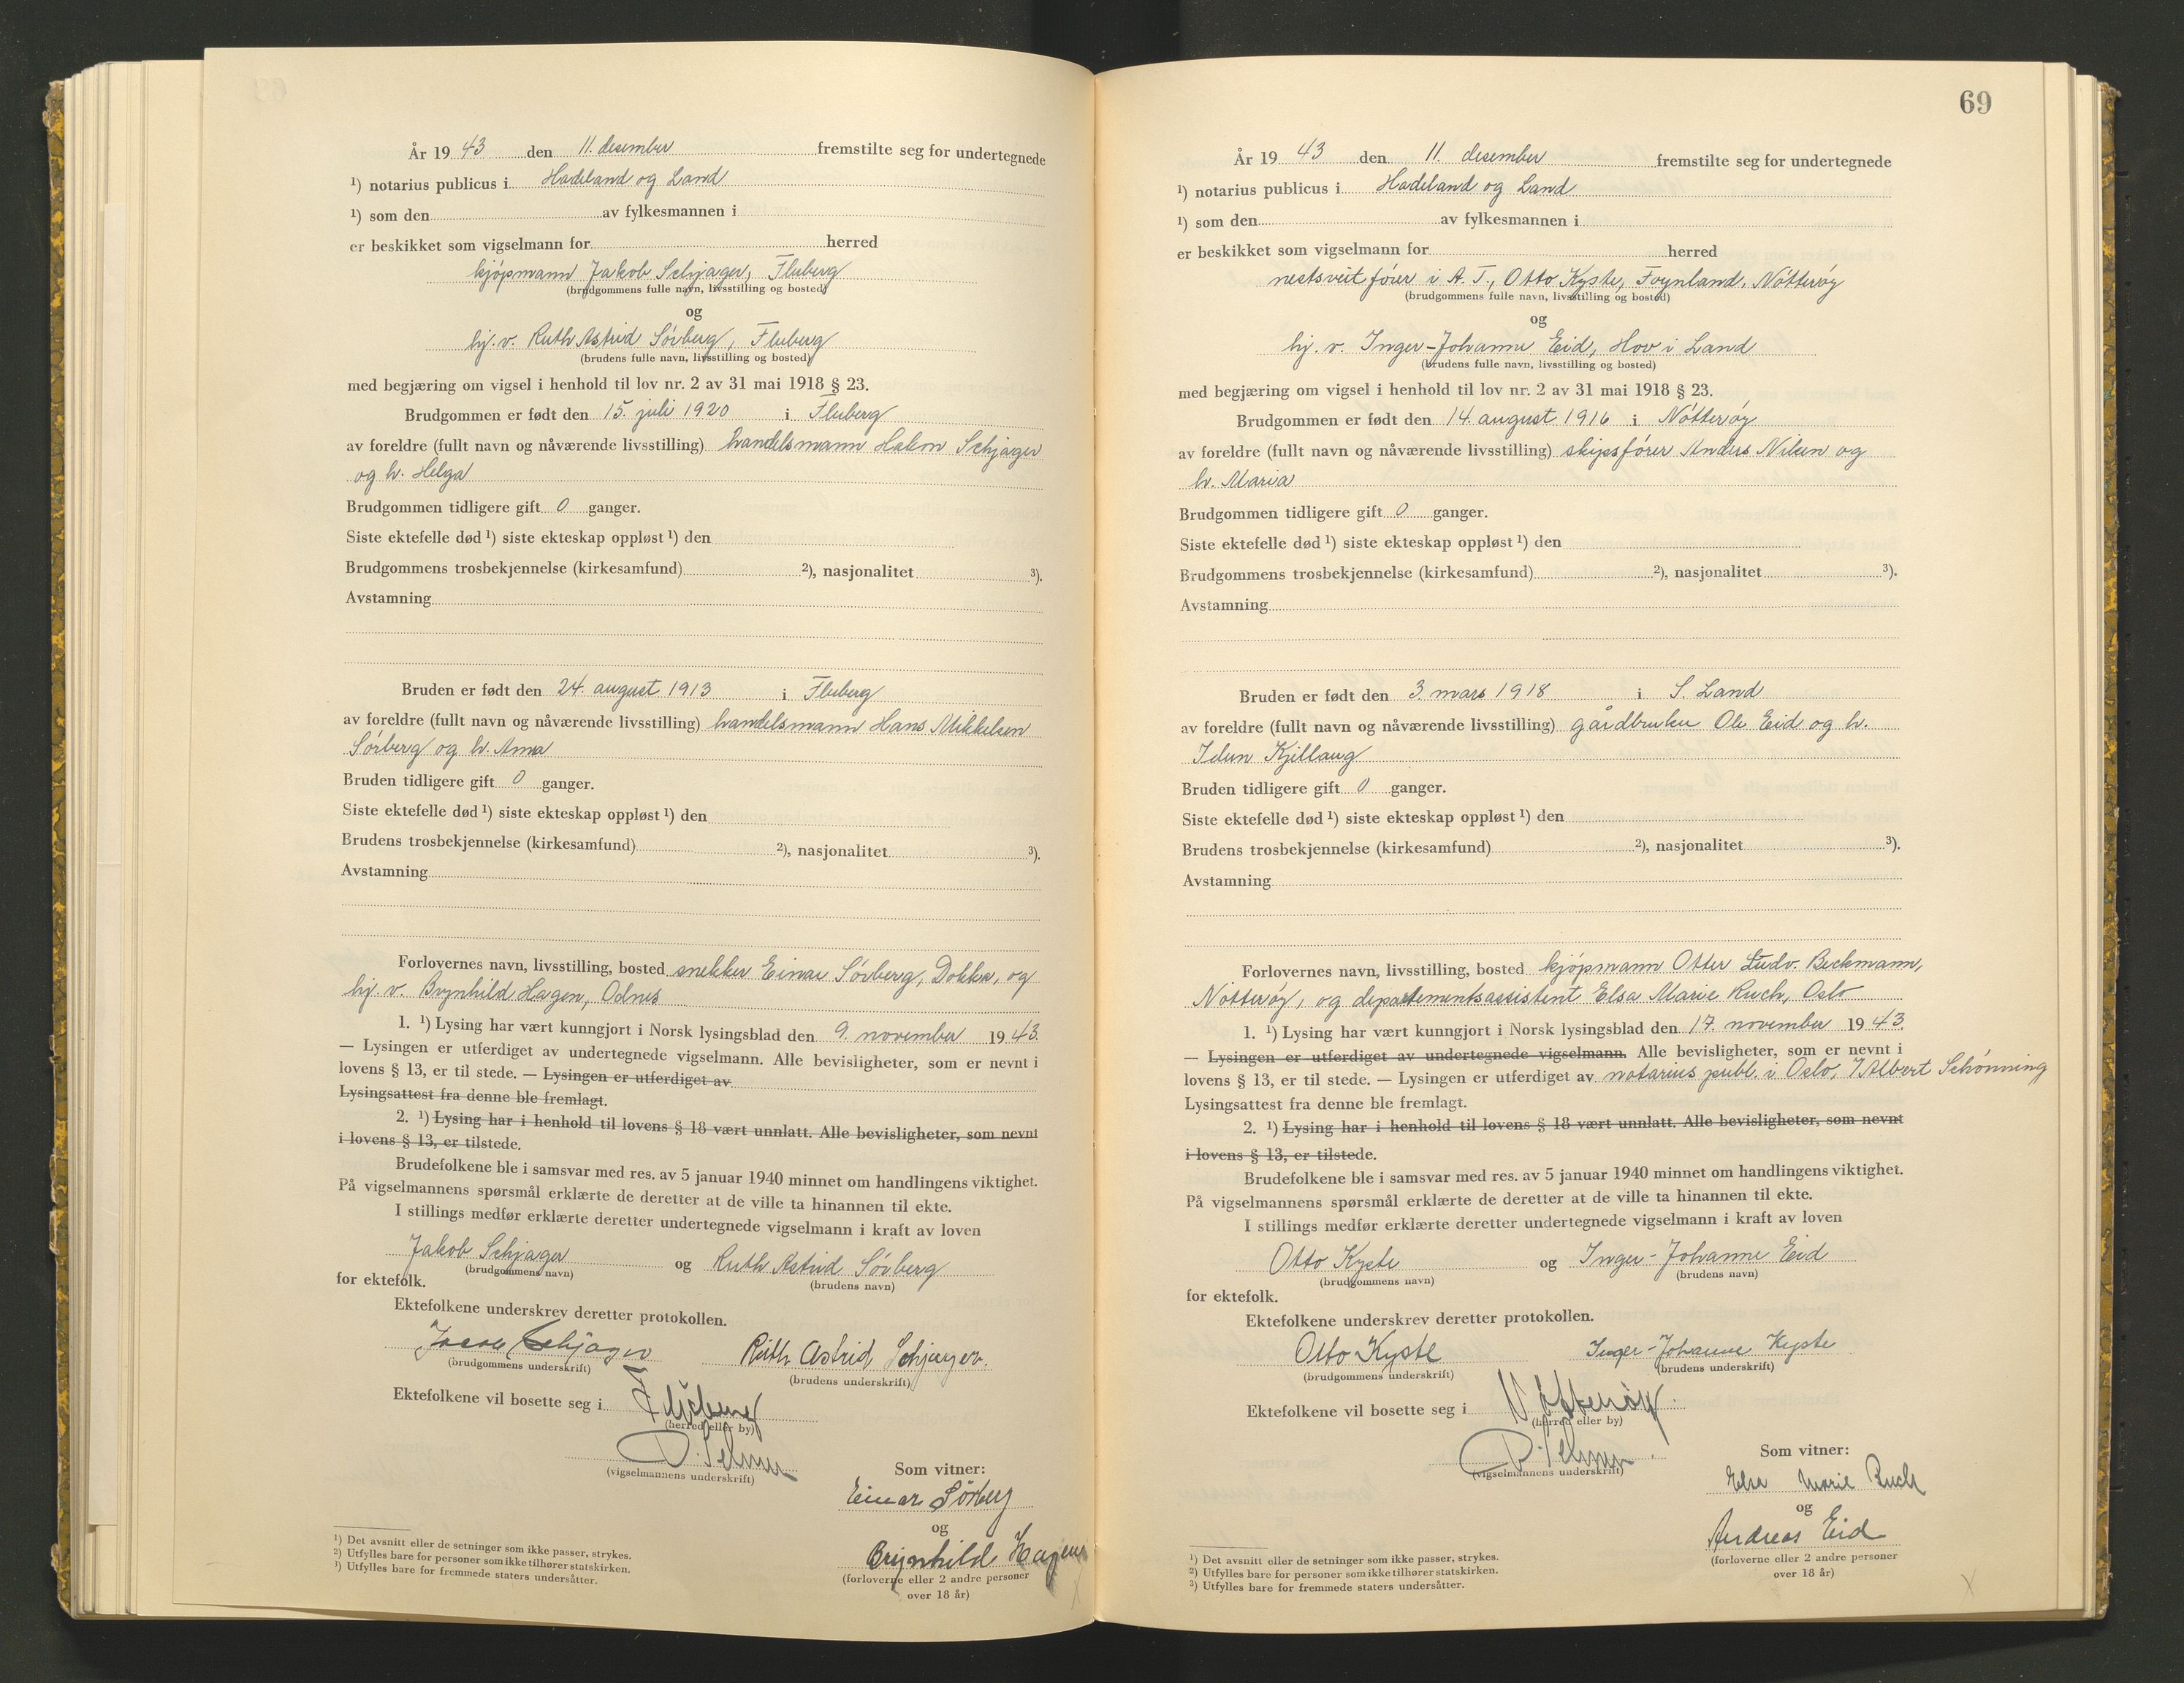 År 19 43 den 11. desember fremstilte seg for undertegnede
¹) notarius publicus i Hadeland og Land
¹) som den av fylkesmannen i
er beskikket som vigselmann for herred
kjøpmann Jakob Schjager, Fluberg
(brudgommens fulle navn, livsstilling og bosted)
og
hj. v. Ruth Astrid Sörberg, Fluberg
(brudens fulle navn, livsstilling og bosted)
med begjæring om vigsel i henhold til lov nr. 2 av 31 mai 1918 § 23.
Brudgommen er født den 15. juli 1920 i Fluberg
av foreldre (fullt navn og nåværende livsstilling) handelsmann Hakon Schjager
og h. Helga
Brudgommen tidligere gift 0 ganger.
Siste ektefelle død ¹) siste ekteskap oppløst ¹) den
Brudgommens trosbekjennelse (kirkesamfund) ²), nasjonalitet ³).
Avstamning
Bruden er født den 24. august 1913 i Fluberg
av foreldre (fullt navn og nåværende livsstilling) handelsmann Hans Mikkelsen
Sörberg og h. Anna
Bruden tidligere gift 0 ganger.
Siste ektefelle død ¹) siste ekteskap oppløst ¹) den
Brudens trosbekjennelse (kirkesamfund) ²), nasjonalitet ³).
Avstamning
Forlovernes navn, livsstilling, bosted snekker Einar Sörberg, Dokka, og
hj. v. Brynhild Hagen, Odnes
1. ¹) Lysing har vært kunngjort i Norsk lysingsblad den 9. november 19 43.
— Lysingen er utferdiget av undertegnede vigselmann. Alle bevisligheter, som er nevnt i
lovens § 13, er til stede. — Lysingen er utferdiget av
Lysingsattest fra denne ble fremlagt.
2. ¹) Lysing har i henhold til lovens § 18 vært unnlatt. Alle bevisligheter, som nevnt
i lovens § 13, er tilstede.
Brudefolkene ble i samsvar med res. av 5 januar 1940 minnet om handlingens viktighet.
På vigselmannens spørsmål erklærte de deretter at de ville ta hinannen til ekte.
I stillings medfør erklærte deretter undertegnede vigselmann i kraft av loven
Jakob Schjager og Ruth Astrid Sörberg
(brudgommens navn) (brudens navn)
for ektefolk.
Ektefolkene underskrev deretter protokollen.
Jacob Schjager Ruth Astrid Schjager.
(brudgommens underskrift) (brudens underskrift)
Ektefolkene vil bosette seg i Fluberg
(herred eller by)
(vigselmannens underskrift)
Som vitner:
Einar Sörberg
og
Brynhild Hagen
(forloverne eller 2 andre personer
over 18 år)
¹) Det avsnitt eller de setninger som ikke passer, strykes.
²) Utfylles bare for personer som ikke tilhører statskirken.
³) Utfylles bare for fremmede staters undersåtter.
69
År 19 43 den 11. desember fremstilte seg for undertegnede
¹) notarius publicus i Hadeland og Land
¹) som den av fylkesmannen i
er beskikket som vigselmann for herred
nestsveitfører i A. T., Otto Kyste, Föynland, Nötteröy
(brudgommens fulle navn, livsstilling og bosted)
og
hj. v. Inger-Johanne Eid, Hov i Land
(brudens fulle navn, livsstilling og bosted)
med begjæring om vigsel i henhold til lov nr. 2 av 31 mai 1918 § 23.
Brudgommen er født den 14. august 1916 i Nötteröy
av foreldre (fullt navn og nåværende livsstilling) skipsförer Anders Nilsen og
h. Maria
Brudgommen tidligere gift 0 ganger.
Siste ektefelle død ¹) siste ekteskap oppløst ¹) den
Brudgommens trosbekjennelse (kirkesamfund) ²), nasjonalitet ³).
Avstamning
Bruden er født den 3. mars 1918 i S. Land
av foreldre (fullt navn og nåværende livsstilling) gårdbruker Ole Eid og h.
Idun Kjillaug
Bruden tidligere gift 0 ganger.
Siste ektefelle død ¹) siste ekteskap oppløst ¹) den
Brudens trosbekjennelse (kirkesamfund) ²), nasjonalitet ³).
Avstamning
Forlovernes navn, livsstilling, bosted kjöpmann Otter Ludv. Beckmann,
Nötteröy, og departementsassistent Elsa Marie Ruch, Oslo
1. ¹) Lysing har vært kunngjort i Norsk lysingsblad den 17. november 19 43.
— Lysingen er utferdiget av undertegnede vigselmann. Alle bevisligheter, som er nevnt i
lovens § 13, er til stede. — Lysingen er utferdiget av notarius publ. i Oslo, J Albert Schönning
Lysingsattest fra denne ble fremlagt.
2. ¹) Lysing har i henhold til lovens § 18 vært unnlatt. Alle bevisligheter, som nevnt
i lovens § 13, er tilstede.
Brudefolkene ble i samsvar med res. av 5 januar 1940 minnet om handlingens viktighet.
På vigselmannens spørsmål erklærte de deretter at de ville ta hinannen til ekte.
I stillings medfør erklærte deretter undertegnede vigselmann i kraft av loven
Otto Kyste og Inger-Johanne Eid
(brudgommens navn) (brudens navn)
for ektefolk.
Ektefolkene underskrev deretter protokollen.
Otto Kyste Inger-Johanne Kyste
(brudgommens underskrift) (brudens underskrift)
Ektefolkene vil bosette seg i Nötteröy.
(herred eller by)
(vigselmannens underskrift)
Som vitner:
Elsa Marie Ruch
og
Andreas Eid
(forloverne eller 2 andre personer
over 18 år)
¹) Det avsnitt eller de setninger som ikke passer, strykes.
²) Utfylles bare for personer som ikke tilhører statskirken.
³) Utfylles bare for fremmede staters undersåtter.